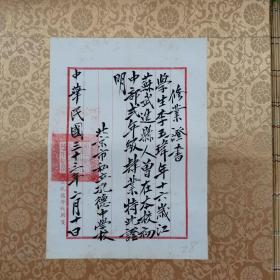 修業證書
學生李玉璋年十六歲江
蘇武進縣人曾在本校初
中部弍年級肄業特此證
明
北京市私立孔德中學校
中華民國三十三年二月十日